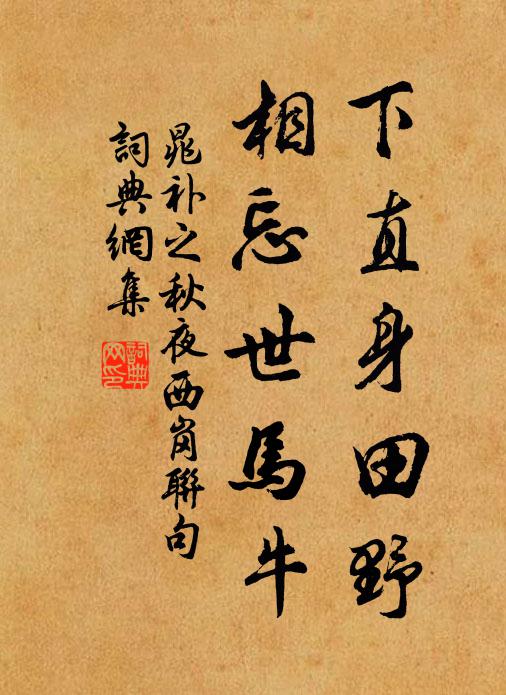 下直身田野
相忘世馬牛
晁补之秋夜西岗聯句
詞典網集
詞典網印